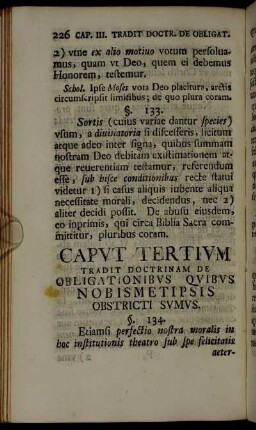 226 CAP. III. TRADIT DOCTR. DE OBLIGAT.
2) vtne ex alio motiuo votum persolua-
mus, quam vt Deo, quem ei debemus
Honorem, testemur.
Schol. Ipse Moses vota Deo placitura, arctis
circumscripsit limitibus; de quo plura coram.
§. 133.
Sortis (cuius variae dantur species)
vsum, a diuinatoria si discesseris, licitum
atque adeo inter signa, quibus summam
nostram Deo debitam existimationem at-
que reuerentiam testamur, referendum
esse, sub hisce conditionibus recte statui
videtur 1) si casus aliquis iubente aliqua
necessitate morali, decidendus, nec 2)
aliter decidi possit. De abusu eiusdem,
eo inprimis, qui circa Biblia Sacra com-
mittitur, pluribus coram.
CAPVT TERTIVM
TRADIT DOCTRINAM DE
OBLIGATIONIBVS QVIBVS
NOBISMETIPSIS
OBSTRICTI SVMVS.
§. 134.
Etiamsi perfectio nostra moralis in
hoc institutionis theatro sub spe felicitatis
aeter-